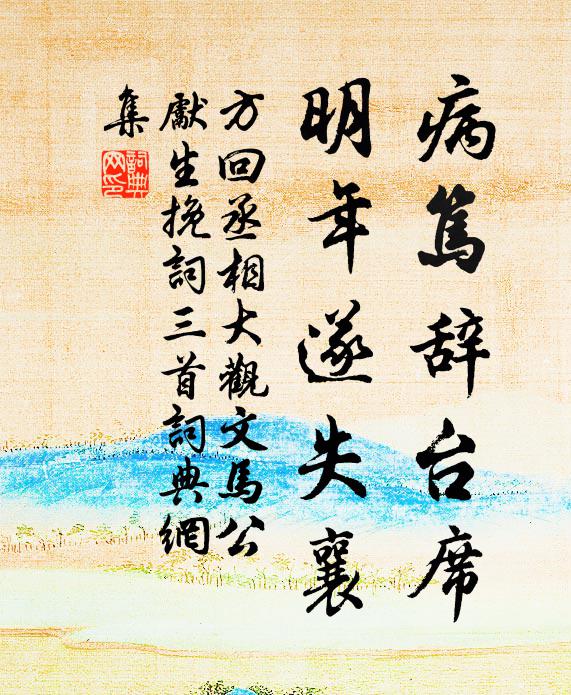 病篤辞台席
明年遂失襄
方回丞相大觀文馬公
獻生挽詞三首詞典網
集
詞典
网印